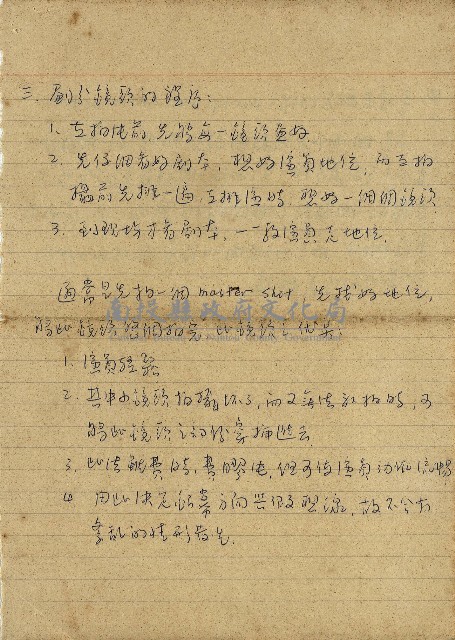 三. 劃分鏡頭的程序:
1. 在拍片前, 先將每一鏡頭畫好.
2. 先仔細看好劇本, 想好演員地位, 而在拍
攝前先排一遍, 在排演時, 想好一個個鏡頭
3. 到現場才看劇本, 一一教演員走地位.
通常是先拍一個 master shot 先找好地位,
將此鏡頭整個拍完 此鏡頭之優点:
南投縣政府文化局
1. 演員
2. 其中小鏡頭拍攝坏了, 而又無法補拍時, 可
將此鏡頭之部份穿插進去
3. 此法雖費時, 費膠片, 但可使演員动作流暢
4. 用此決定銀幕方向 故不會有
紊乱的情形發生.